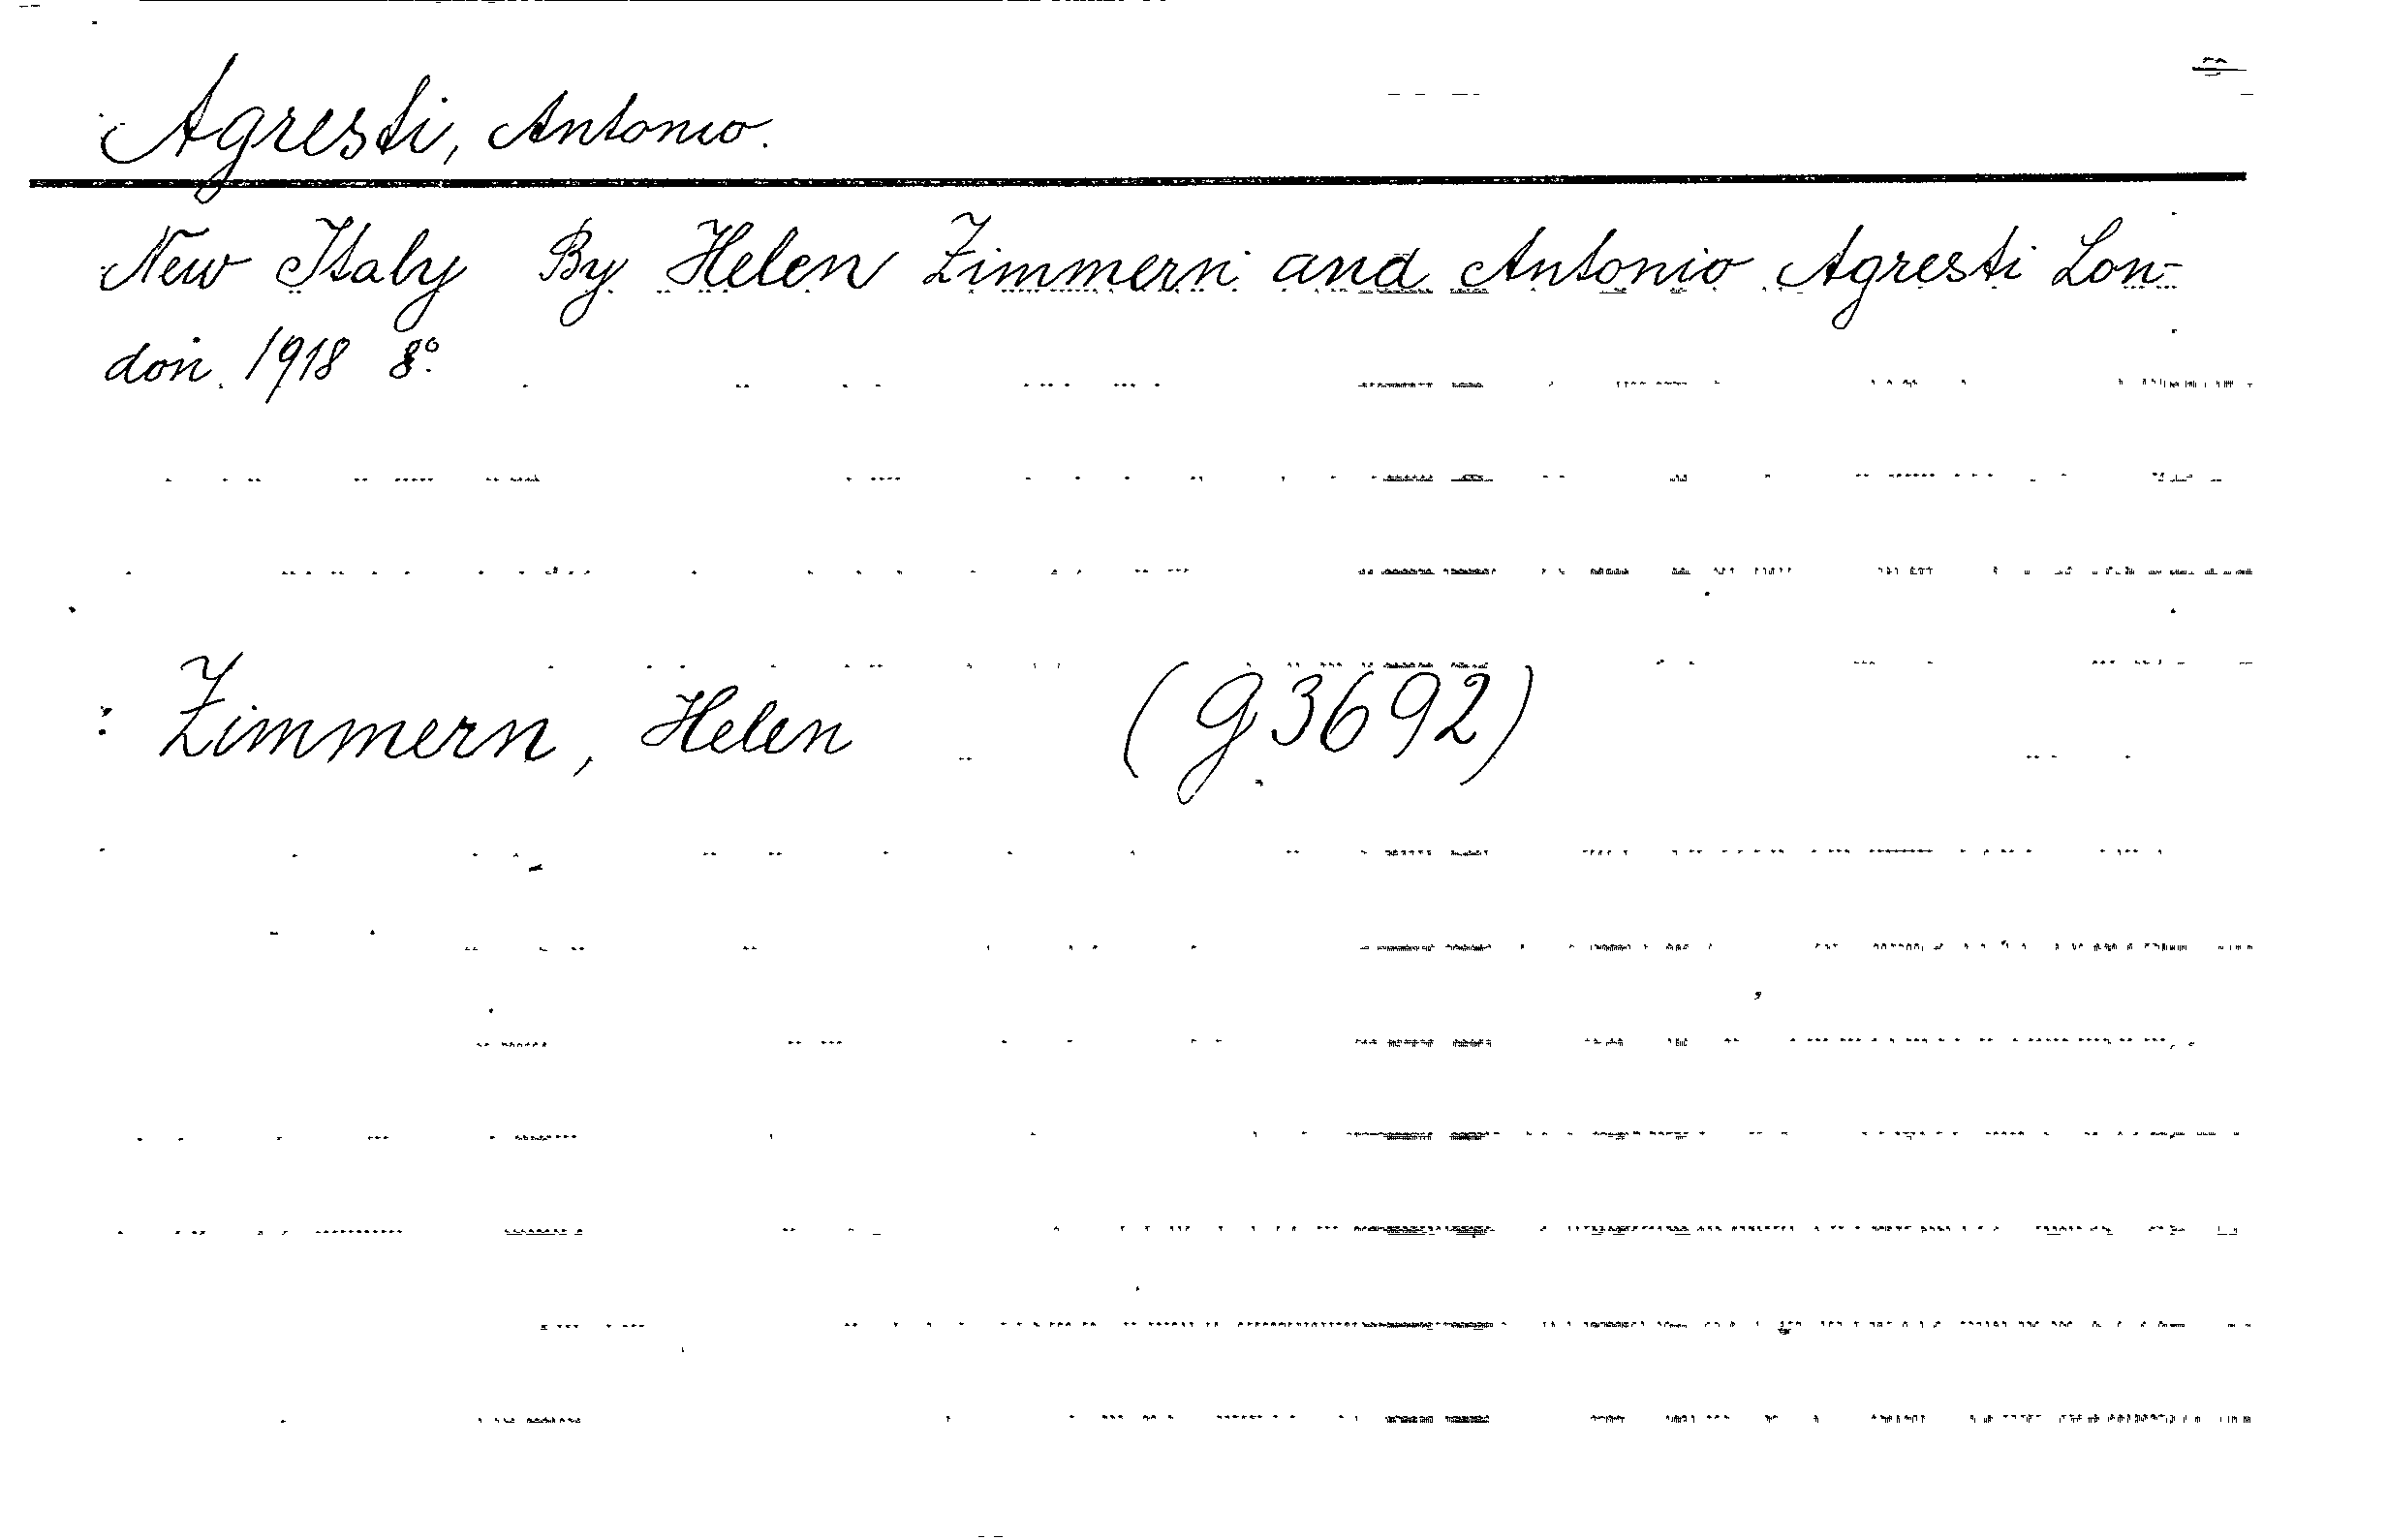 Agresti, Antonio.
New Italy By Helen Zimmern and Antonio Agresti Lon-
don. 1918 8º.
: Zimmern, Helen (g 3692)